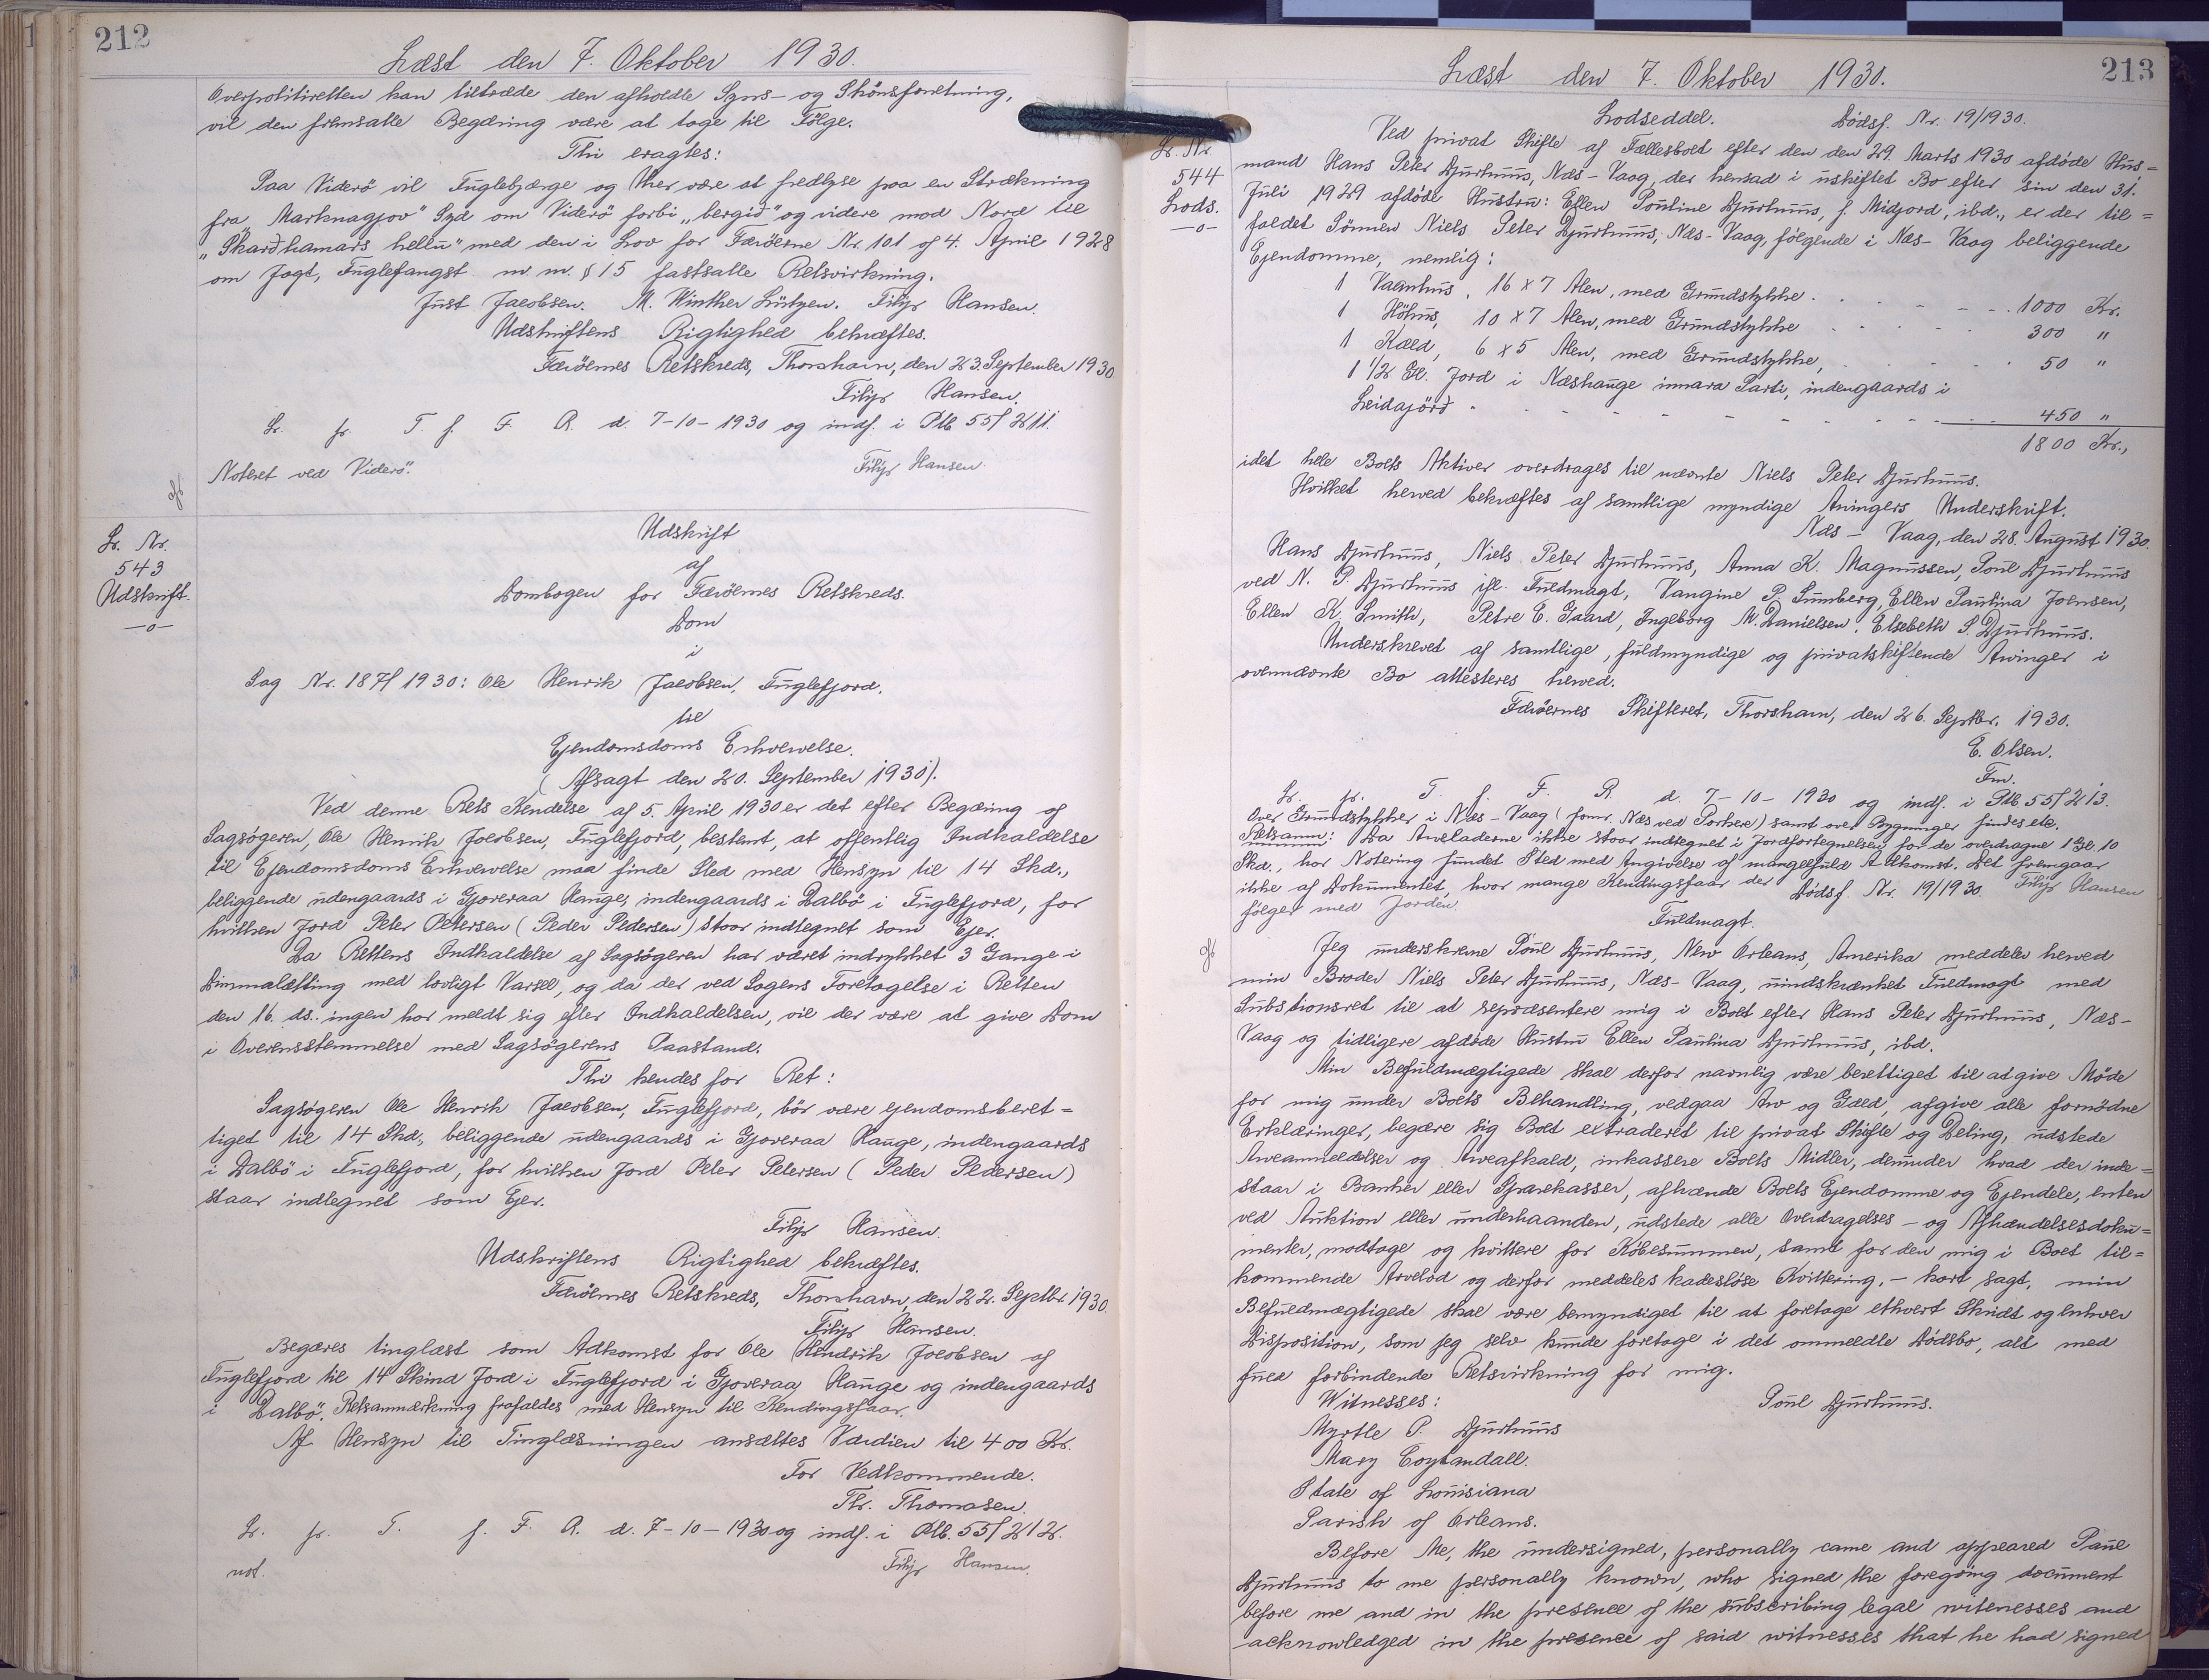 212
Læst den 7. Oktober 1930.
Overpolitiretten kan tiltræde den afholdte Syns- og Skönsforretning,
vil den fremsatte Begæring være at tage til Fölge.
Thi eragtes:
Paa Viderö vil Fuglebjærge og Uher være at fredlyse paa en Strækning
fra „Marknagjov" Syd om Viderö forbi „bergið" og videre mod Nord til
„Skarðhamars hellu" med den i Lov for Færöerne Nr. 101 af 4. April 1928
om Jagt, Fuglefangst m. m. § 15 fastsatte Retsvirkning.
Just Jacobsen. M. Winther Lützen. Filip Hansen.
Udskriftens Rigtighed bekræftes.
Færöernes Retskreds, Thorshavn, den 23. September 1930.
Filip Hansen.
Lr. fr. T. f. F. R. d. 7-10-1930 og indf. i Ptb. 55/211.
Noteret ved Viderö.
Filip Hansen.
Lr. Nr.
543
Udskrift.
—o—
Udskrift
af
Dombogen for Færöernes Retskreds.
Dom
i
Sag Nr. 187/1930: Ole Henrik Jacobsen, Fuglefjord.
til
Ejendomsdoms Erhvervelse.
(Afsagt den 20. September 1930).
Ved denne Rets Kendelse af 5. April 1930 er det efter Begæring af
Sagsögeren, Ole Henrik Jacobsen, Fuglefjord, bestemt, at offentlig Indkaldelse
til Ejendomsdoms Erhvervelse maa finde Sted med Hensyn til 14 Skd.,
beliggende udengaards i Gjoveraa Hauge, indengaards i Dalbö i Fuglefjord, for
hvilken Jord Peter Petersen (Peder Pedersen) staar indtegnet som Ejer.
Da Rettens Indkaldelse af Sagsögeren har været indrykket 3 Gange i
Dimmalætting med lovligt Varsel, og da der ved Sagens Foretagelse i Retten
den 16. ds. ingen har meldt sig efter Indkaldelsen, vil der være at give Dom
i Overensstemmelse med Sagsögerens Paastand.
Thi kendes for Ret:
Sagsögeren Ole Henrik Jacobsen, Fuglefjord, bör være ejendomsberet=
tiget til 14 Skd., beliggende udengaards i Gjoveraa Hauge, indengaards
i Dalbö i Fuglefjord, for hvilken Jord Peter Petersen (Peder Pedersen)
staar indtegnet som Ejer.
Filip Hansen.
Udskriftens Rigtighed bekræftes.
Færöernes Retskreds, Thorshavn, den 22. Septbr. 1930.
Filip Hansen.
Begæres tinglæst som Adkomst for Ole Hendrik Jacobsen af
Fuglefjord til 14 Skind Jord i Fuglefjord i Gjoveraa Hauge og indengaards
i Dalbö. Retsanmærkning frafaldes med Hensyn til Kendingsfaar.
Af Hensyn til Tinglæsningen ansættes Værdien til 400 Kr.
For Vedkommende.
Thr. Thomasen.
Lr. fr. T. f. F. R. d. 7-10-1930 og indf. i Ptb. 55/212.
not.
Filip Hansen.
213
Læst den 7. Oktober 1930.
Lr. Nr.
544
Lods.
—o—
Lodseddel. Dödsf. Nr. 19/1930.
Ved privat Skifte af Fællesboet efter den den 29. Marts 1930 afdöde Hus=
mand Hans Peter Djurhuus, Næs-Vaag, der hensad i uskiftet Bo efter sin den 31.
Juli 1929 afdöde Hustru: Ellen Pouline Djurhuus, f. Midjord, ibd., er der til=
faldet Sönnen Niels Peter Djurhuus, Næs-Vaag, fölgende i Næs-Vaag beliggende
Ejendomme, nemlig:
1 Vaanhus, 16 x 7 Alen, med Grundstykke. 1000 Kr.
1 Höhus, 10 x 7 Alen, med Grundstykke 300 "
1 Kæld, 6 x 5 Alen, med Grundstykke, 50 "
1 1/2 Gl. Jord i Næshauge innara Parti, indengaards i
Leidajörð 450 "
1800 Kr.,
idet hele Boets Aktiver overdrages til nævnte Niels Peter Djurhuus.
Hvilket herved bekræftes af samtlige myndige Arvingers Underskrift.
Næs-Vaag, den 28. August 1930.
Hans Djurhuus, Niels Peter Djurhuus, Anna K. Magnussen, Poul Djurhuus
ved N. P. Djurhuus ifl. Fuldmagt, Vangine P. Sumberg, Ellen Paulina Joensen,
Ellen K. Smith, Petre E. Gaard, Ingeborg M. Danielsen, Elsebeth S. Djurhuus.
Underskrevet af samtlige, fuldmyndige og privatskiftende Arvinger i
ovennævnte Bo attesteres herved.
Færöernes Skifteret, Thorshavn, den 26. Septbr. 1930.
E. Olsen.
Fm.
Lr. fr. T. f. F. R. d. 7-10-1930 og indf. i Ptb. 55/213.
Over Grundstykker i Næs-Vaag (forms. Næs ved Porkere) samt over Bygninger findes ete.
Retsanm: Da Arveladerne ikke staar indtegnet i Jordfortegnelsen for de overdragne 1 Gl. 10
Skd., har Notering fundet Sted med Angivelse af mangelfuld Adkomst. Det fremgaar
ikke af Dokumentet, hvor mange Kendingsfaar der
fölger med Jorden.
Filip Hansen
Dödsf. Nr. 19/1930.
Fuldmagt.
Jeg underskrevne Poul Djurhuus, New Orleans, Amerika meddeler herved
min Broder Niels Peter Djurhuus, Næs-Vaag, uindskrænket Fuldmagt med
Substionsret til at repræsentere mig i Boet efter Hans Peter Djurhuus, Næs-
Vaag og tidligere afdöde Hustru Ellen Paulina Djurhuus, ibd.
Min Befuldmægtigede skal derfor navnlig være berettiget til at give Möde
for mig under Boets Behandling, vedgaa Arv og Gæld, afgive alle fornödne
Erklæringer, begære sig Boet extraderet til privat Skifte og Deling, udstede
Arveanmeldelser og Arveafkald, inkassere Boets Midler, derunder hvad der inde=
staar i Banker eller Sparekasser, afhænde Boets Ejendomme og Ejendele, enten
ved Auktion eller underhaanden, udstede alle Overdragelses- og Afhændelsesdoku=
menter, modtage og kvittere for Köbesummen, samt for den mig i Boet til=
kommende Arvelod og derfor meddeles kadeslöse Kvittering, - kort sagt, min
Befuldmægtigede skal være bemyndiget til at foretage ethvert Skridt og enhver
Disposition, som jeg selv kunde foretage i det ommeldte Dödsbo, alt med
fuld forbindende Retsvirkning for mig.
Witnesses: Poul Djurhuus.
Myrtle P. Djurhuus
Mary Coytandall.
State of Louisiana
Parish of Orleans.
Before Me, the undersigned, personally came and appeared Paul
Djurhuus to me personally known, who signed the foregoing document
before me and in the presence of the subscribing legal witenesses and
acknowledged in the presence of said witnesses that he had signed